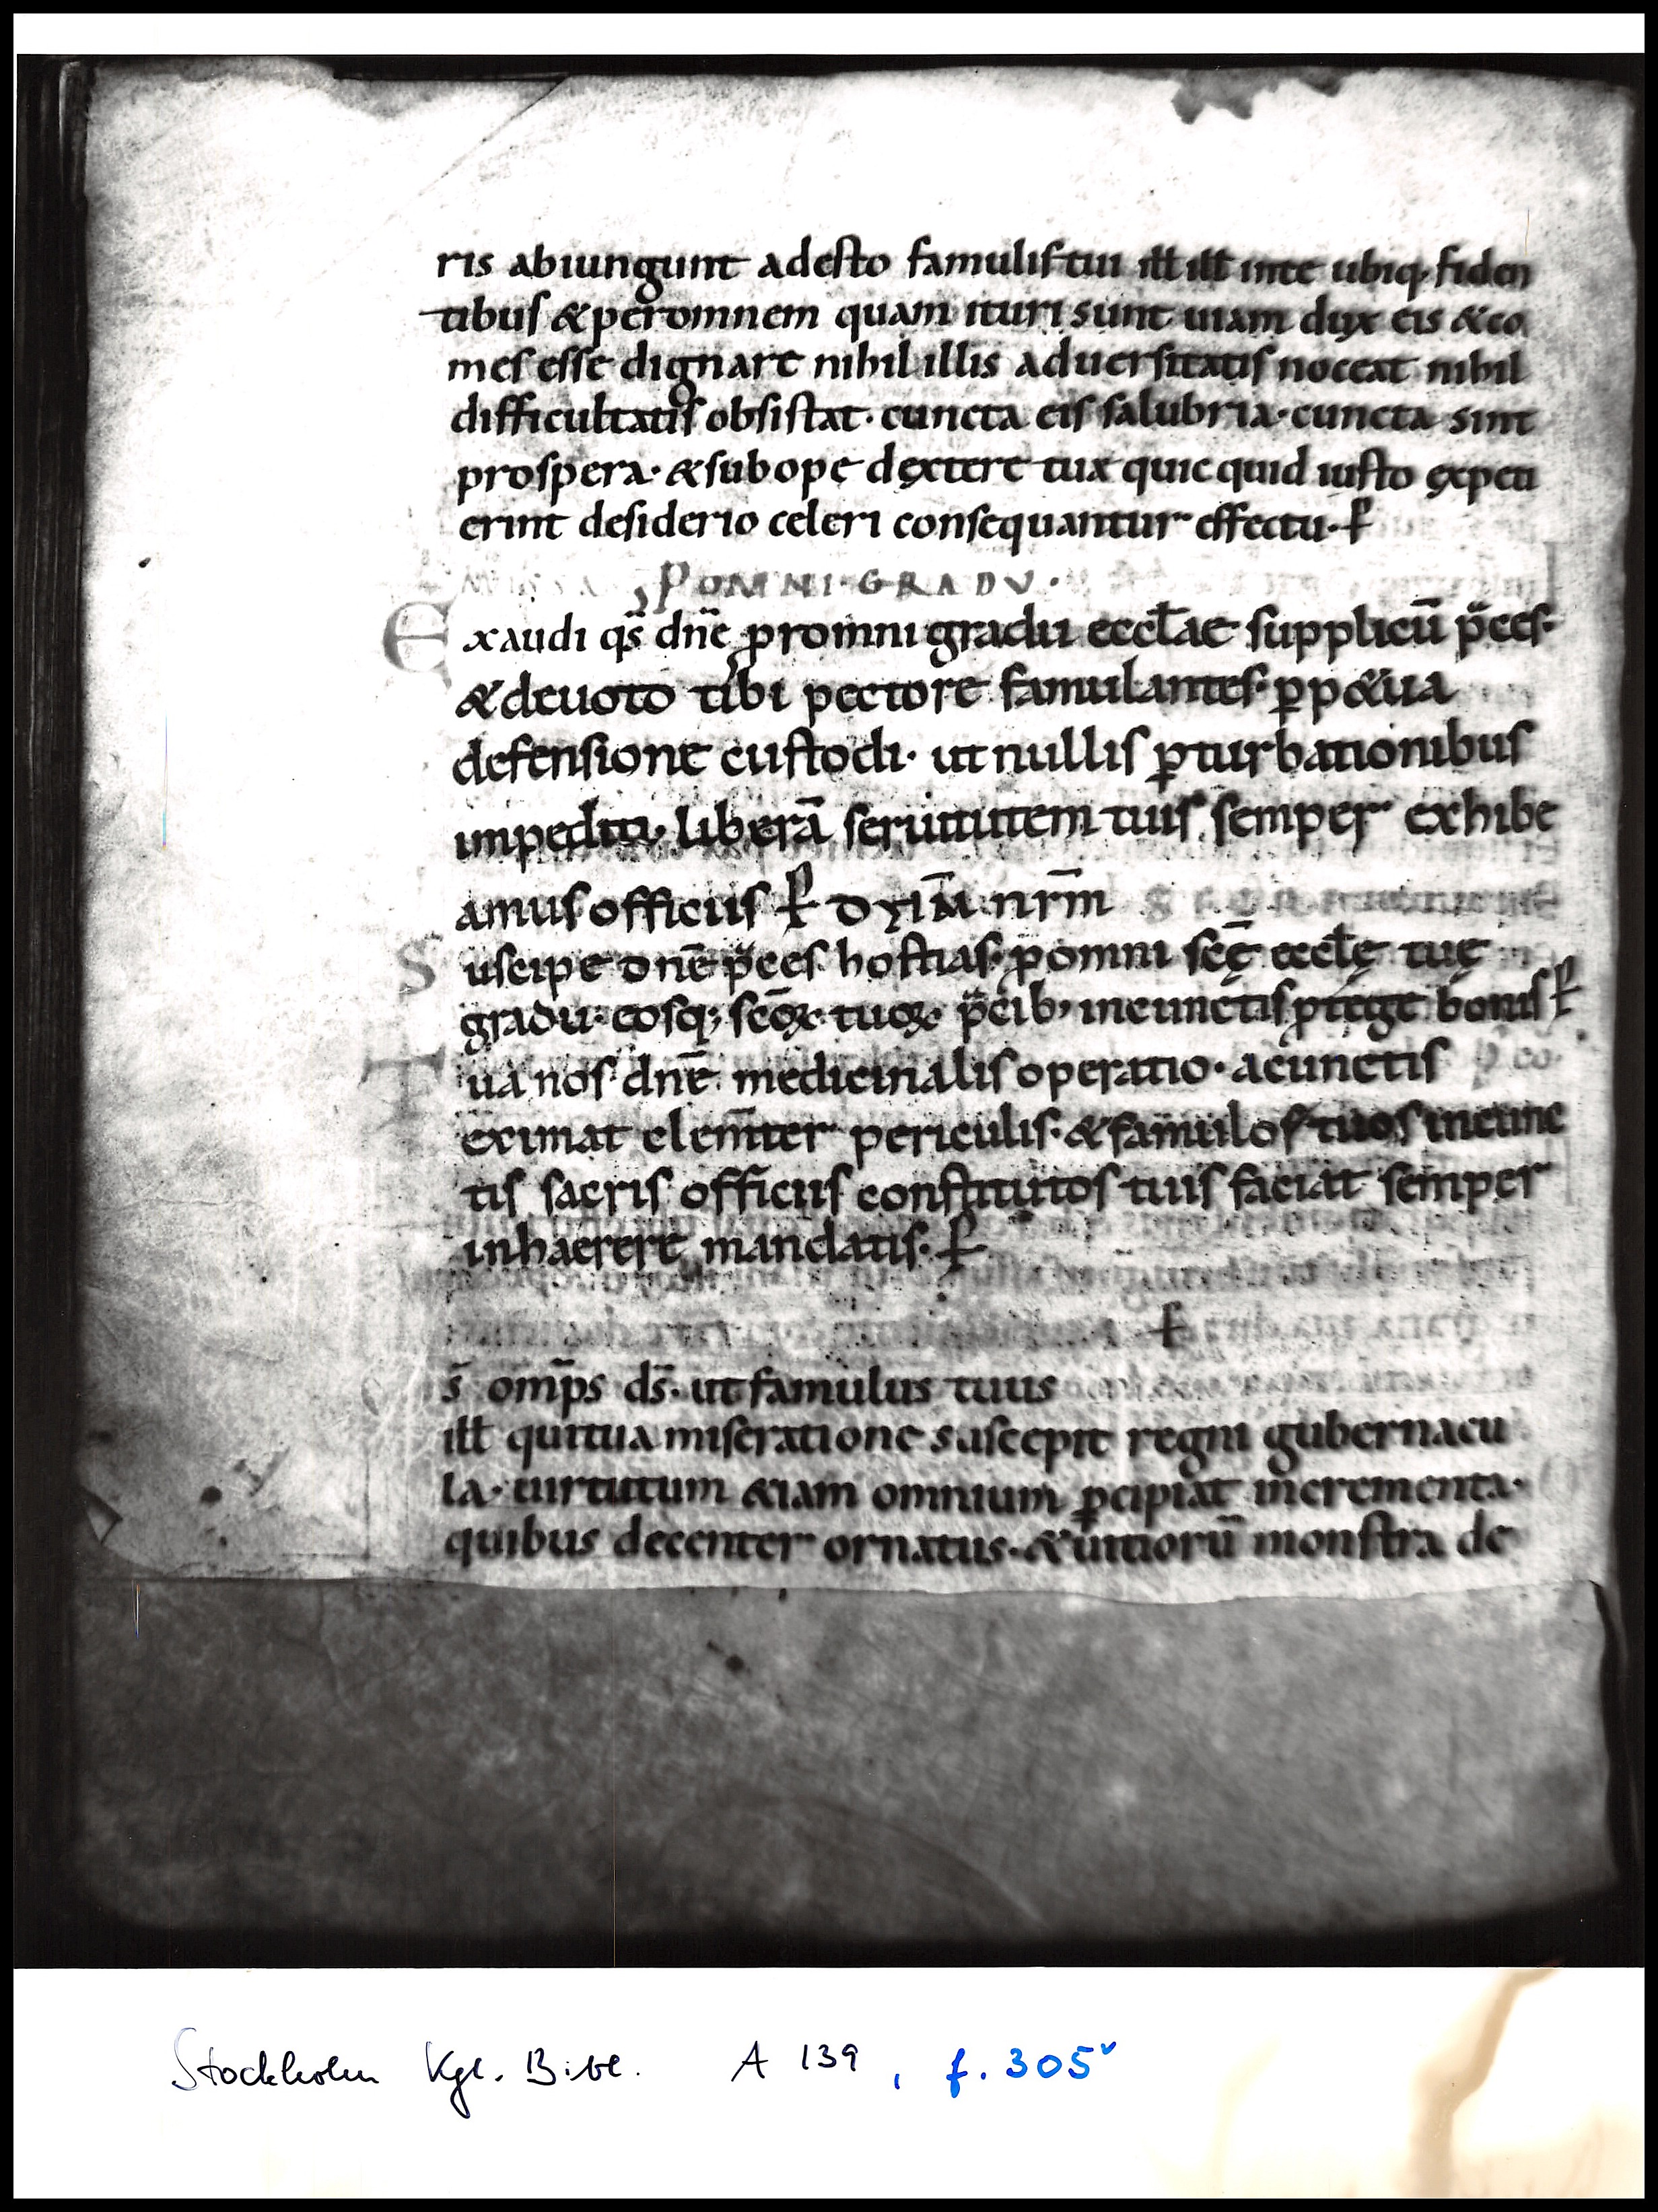 ris abiungunt adesto famulis tui ill̅ ill̅ inte ubiq; fiden
tibus & peromnem quam ituri sunt uiam dux eis & co
mes esse dignare nihil illis aduersitatis noceat nihil
difficultatis obsistat · cuncta eis salubria · cuncta sint
prospera · & sub ope dęxtere tuæ quicquid iusto ęxpeti
erint desiderio celeri consequantur effectu · P̵
MISSA PROMNI · GRADV ·
Exaudi qs̄ dn̄e ꝓomni gradu eccl̅ae supplicū p̄ces ·
& deuoto tibi pectore famulantes · ꝑp&ua
defensione custodi · ut nullis ꝑturbationibus
impediti · liberā seruitutem tuis semper exhibe
amus officiis P̵ dn̄m nr̄m
Suscipe dn̄e p̄ces hostias · ꝓomni sc̄ę eccl̅ę tuę
gradu · eosq; sc̄oꝝ tuoꝝ p̄cib; incunctis ꝓtege bonis P̵
Tua nos dn̄e medicinalis operatio · acunctis p̄ co
eximat clem̄ter periculis · & famulos tuos incunc
tis sacris officiis constitutos tuis faciat semper
inhaerere mandatis · P̵
s̄ omp̄s ds̄ · ut famulus tuus
ill̅ qui tua miseratione suscepit regni gubernacu
la · uirtutum &iam omnium ꝑcipiat incrementa ·
quibus decenter ornatus · & uitiorū monstra de
Stockholm Kgl. Bibl. A 139, f. 305ᵛ